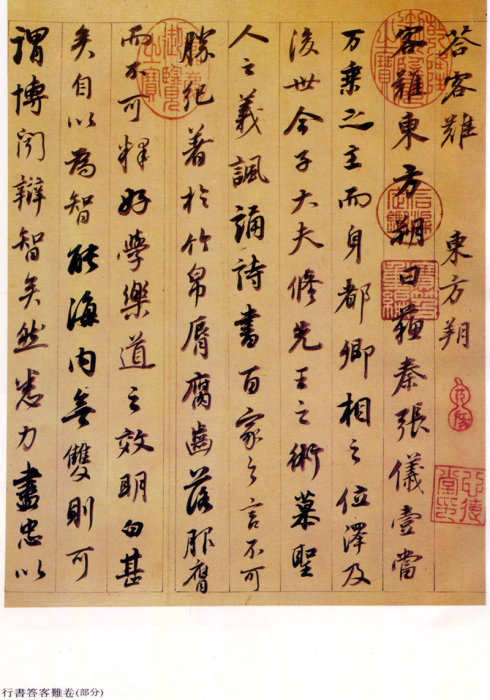 荅客難 東方朔
客難東方朔曰蘇秦張儀壹當
万乘之主而身都卿相之位澤及
後世今子大夫修先王之術慕聖
人之義諷誦詩書百家之言不可
勝紀著於竹帛脣腐齒落服膺
而不可釋好學樂道之效明白甚
矣自以為智能海内無雙則可
謂博聞辯智矣然悉力盡忠以
行書答客難卷(部分)